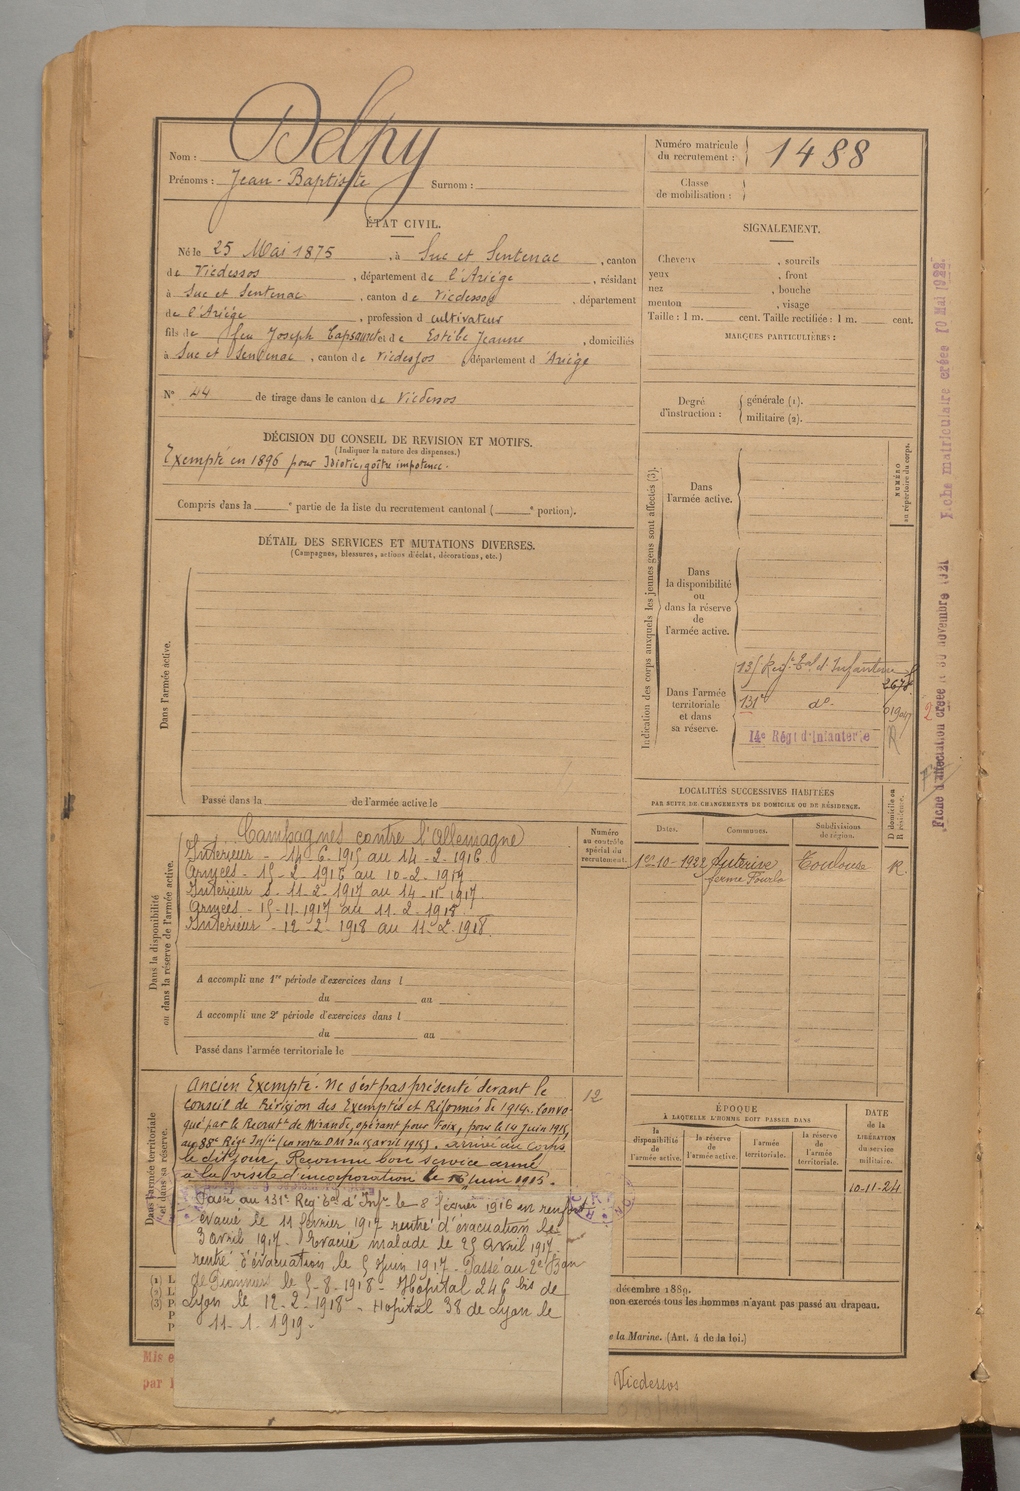 Nom : Delpy
Prénoms : Jean-Baptiste Surnom :
Numéro matricule du recrutement : 1488
Classe de mobilisation :
ÉTAT CIVIL.
Né le 25 Mai 1875, à Suc et Sentenac, canton
de Vicdessos, département de l'Ariège, résidant
à Suc et Sentenac, canton de Vicdessos, département
de l'Ariège, profession d cultivateur
fils de feu Joseph et de Estèbe Jeanne, domiciliés
à Suc et Sentenac, canton de Vicdessos, département d Ariège
N° 44 de tirage dans le canton de Vicdessos
SIGNALEMENT.
Cheveux , sourcils
yeux , front
nez , bouche
menton , visage
Taille : 1 m. cent. Taille rectifiée : 1 m. cent.
MARQUES PARTICULIÈRES :
Degré d'instruction : générale (1).
militaire (2).
DÉCISION DU CONSEIL DE REVISION ET MOTIFS.
(Indiquer la nature des dispenses.)
Exempté en 1896 pour Idiotie, goître impotence.
Compris dans la e partie de la liste du recrutement cantonal ( e portion).
DÉTAIL DES SERVICES ET MUTATIONS DIVERSES.
(Campagnes, blessures, actions d'éclat, décorations, etc.)
Dans l'armée active.
Passé dans la de l'armée active le
Indication des corps auxquels les jeunes gens sont affectés (3).
NUMÉRO au répertoire du corps.
Dans l'armée active.
Dans la disponibilité ou dans la réserve de l'armée active.
Dans l'armée territoriale et dans sa réserve.
135 Regt Eal d'Infanterie
2678
131e do
14e Régt d'Infanterie
R
Fiche d'affectation créée le 30 novembre 1921
Fiche matriculaire créée 10 Mai 1922.
LOCALITÉS SUCCESSIVES HABITÉES
PAR SUITE DE CHANGEMENTS DE DOMICILE OU DE RÉSIDENCE.
Dates. Communes. Subdivisions de région. D domicile ou R résidence.
1er-10-1922 Auterive Toulouse R.
ferme Fourlo
Dans la disponibilité ou dans la réserve de l'armée active.
Numéro au contrôle spécial du recrutement.
Campagnes contre l'Allemagne
Intérieur - 14-6-1915 au 14-2-1916
Armées - 15-2-1916 au 10-2-1917
Intérieur - 11-2-1917 au 14-11-1917
Armées - 15-11-1917 au 11-2-1918
Intérieur - 12-2-1918 au 11-2-1918.
A accompli une 1re période d'exercices dans l
du au
A accompli une 2e période d'exercices dans l
du au
Passé dans l'armée territoriale le
Dans l'armée territoriale et dans sa réserve.
Ancien Exempté. Ne s'est pas présenté devant le
Conseil de Révision des Exemptés et Réformés de 1914. Convo-
qué par le Recrutt de Mirande, opérant pour Foix, pour le 14 Juin 1915,
au 88e Régt Infie (en vertu DM du 15 avril 1915). arrivé au corps
le dit jour. Reconnu bon service armé
à la visite d'incorporation le 16 Juin 1915.
12
Passé au 131e Reg Eal d'Infie le 8 février 1916 en renfort
évacué le 11 février 1917 rentré d'évacuation le
3 avril 1917. Evacué malade le 25 avril 1917
rentré d'évacuation le 5 Juin 1917. Passé au 2e Bon
de Pionniers le 5-8-1918. Hôpital 246 bis de
Lyon le 12-2-1918. Hopital 38 de Lyon le
11-1-1919.
ÉPOQUE
À LAQUELLE L'HOMME DOIT PASSER DANS
la disponibilité de l'armée active. la réserve de l'armée active. l'armée territoriale. la réserve de l'armée territoriale.
DATE de la LIBÉRATION du service militaire.
10-11-24
(1) L
(2) L
(3) P
P
P
décembre 1889.
non exercés tous les hommes n'ayant pas passé au drapeau.
e la Marine. (Art. 4 de la loi.)
Mis e
par l
Vicdessos